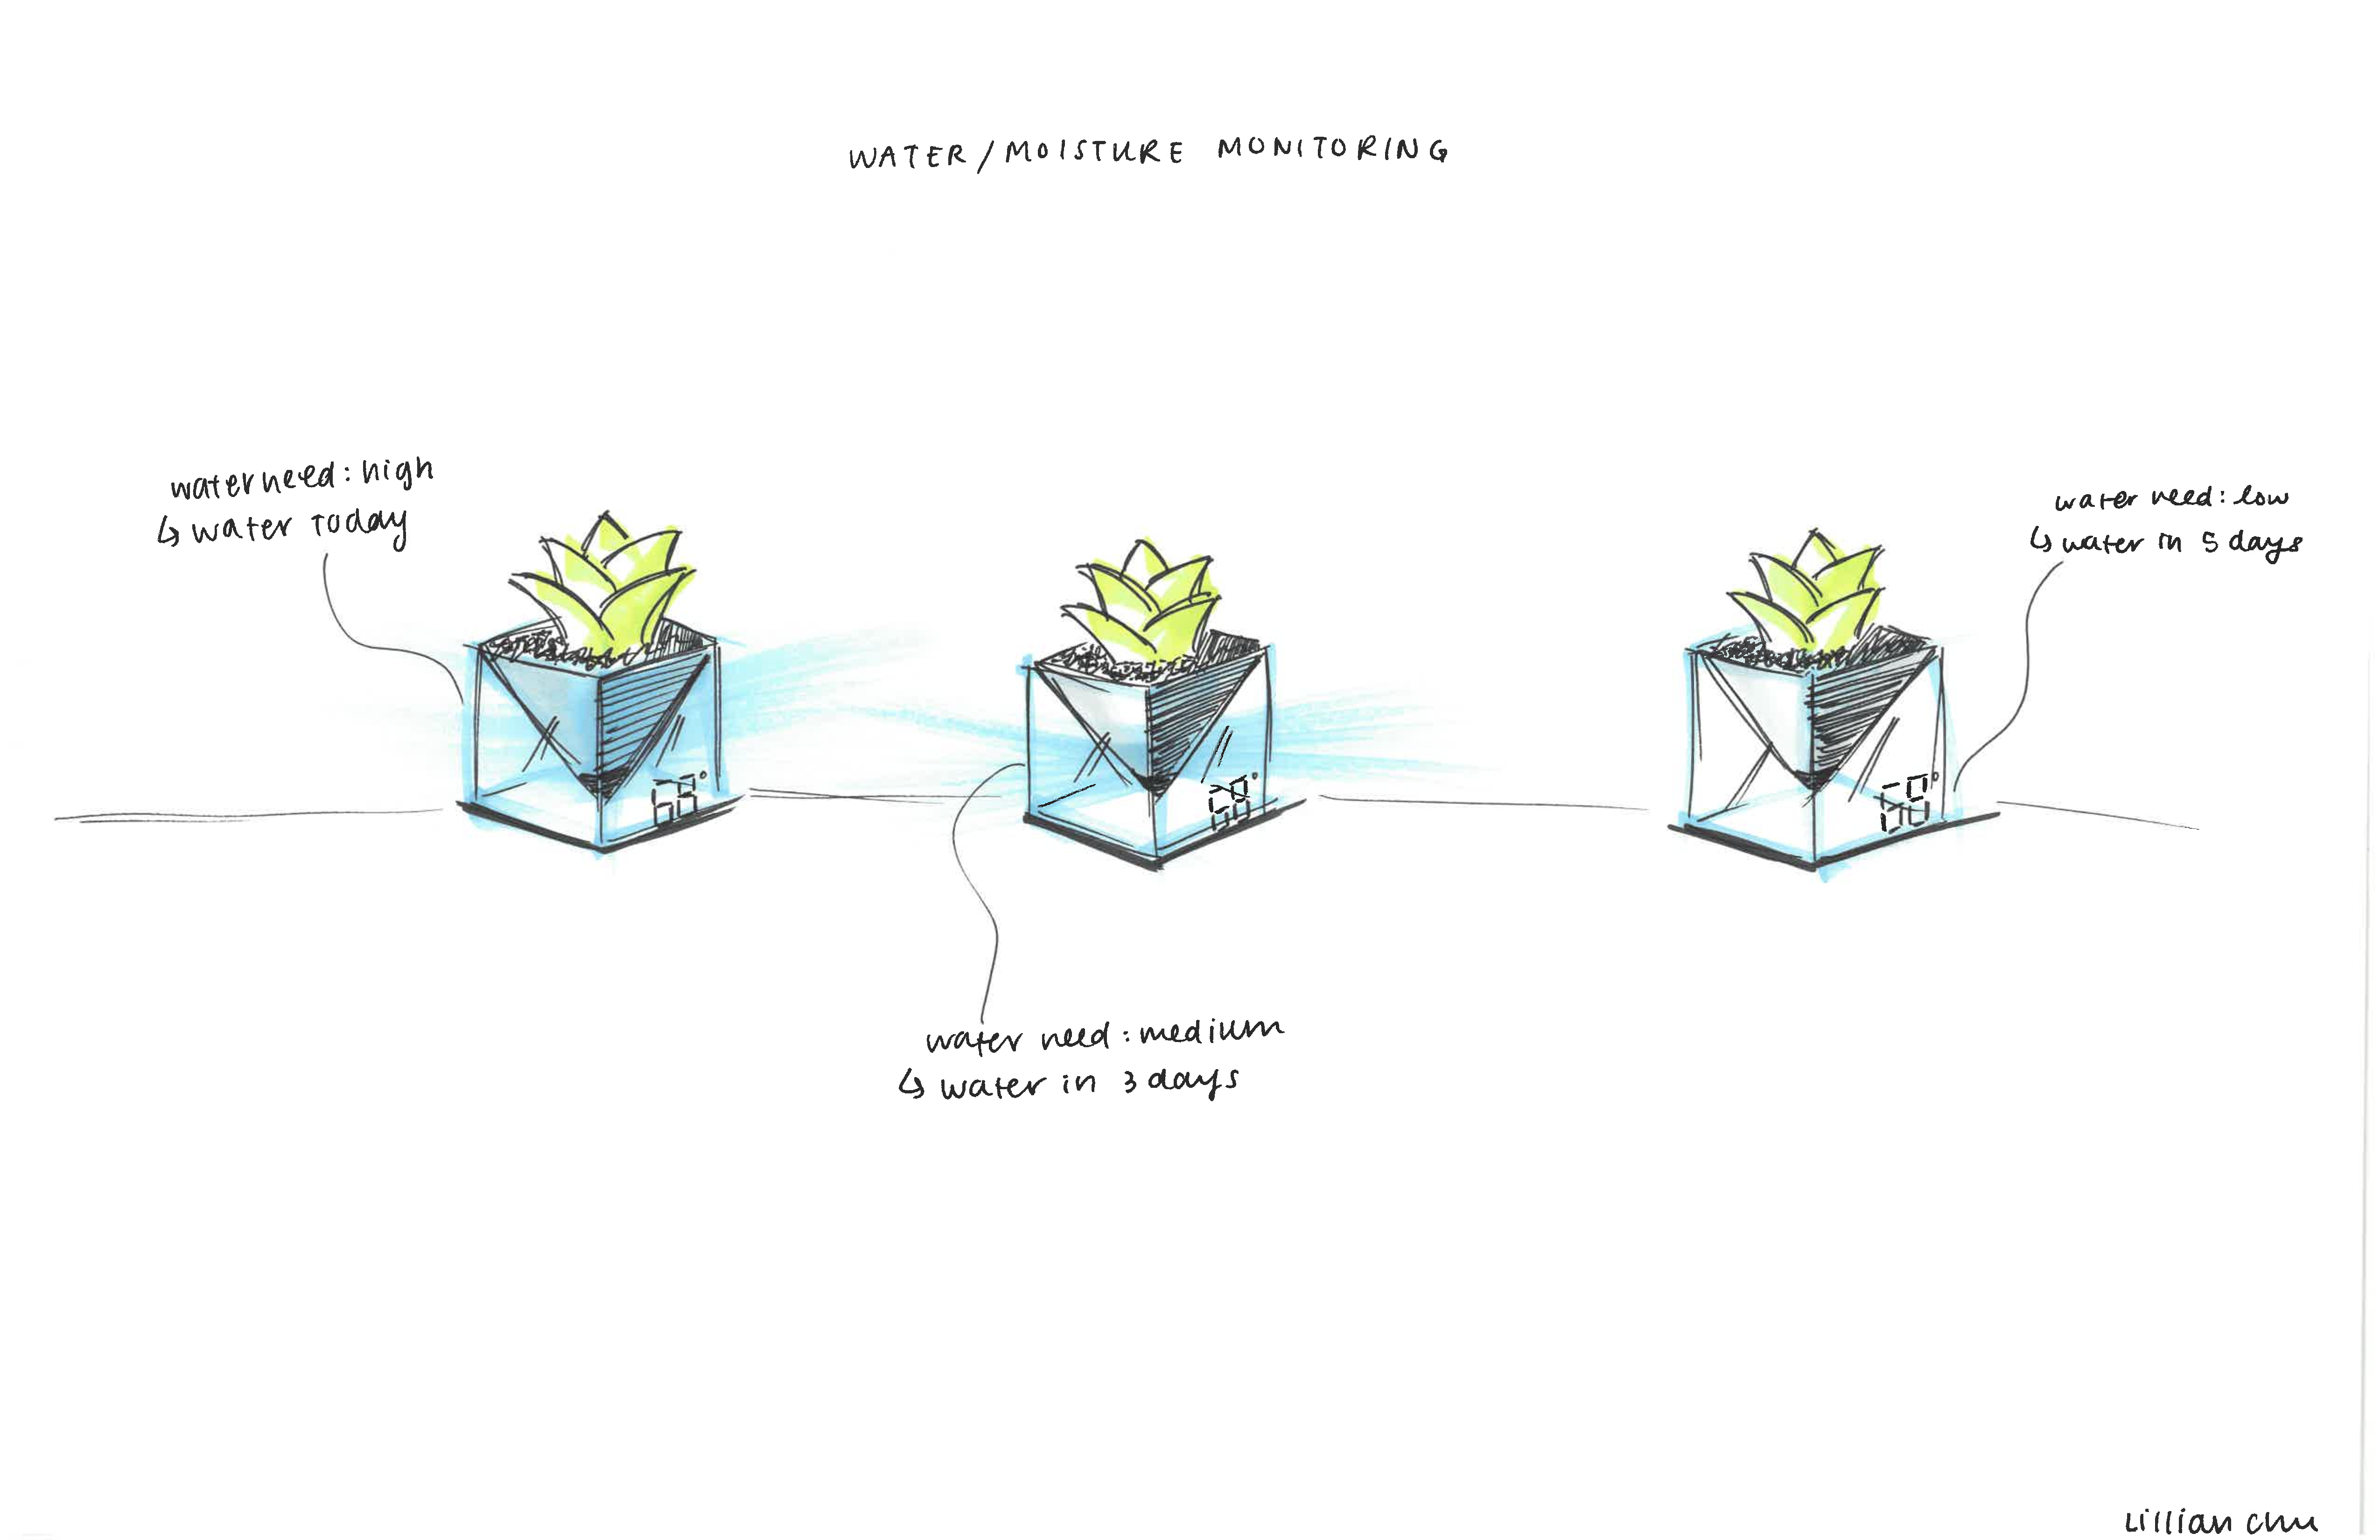 WATER/MOISTURE MONITORING
water need: high
↳ water today
water need: low
↳ water in 5 days
68°
68°
68°
water need: medium
↳ water in 3 days
Lillian Chu